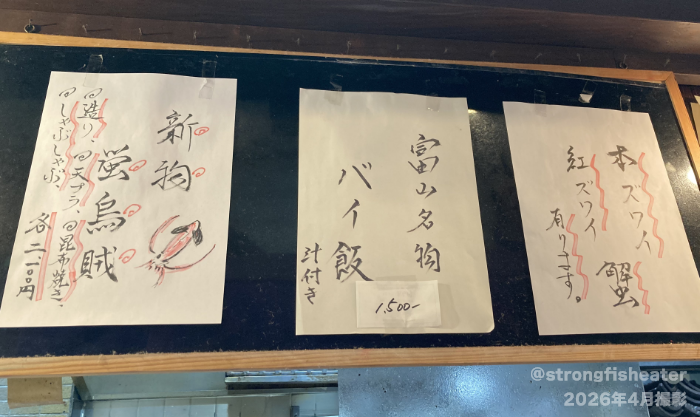 本ズワイ蟹
紅ズワイ
有ります。
富山名物
バイ飯
汁付き
1,500-
新物
螢烏賊
◎造り、◎天プラ、◎昆布焼き、
◎しゃぶしゃぶ 各二、一〇〇円
@strongfisheater
2026年4月撮影